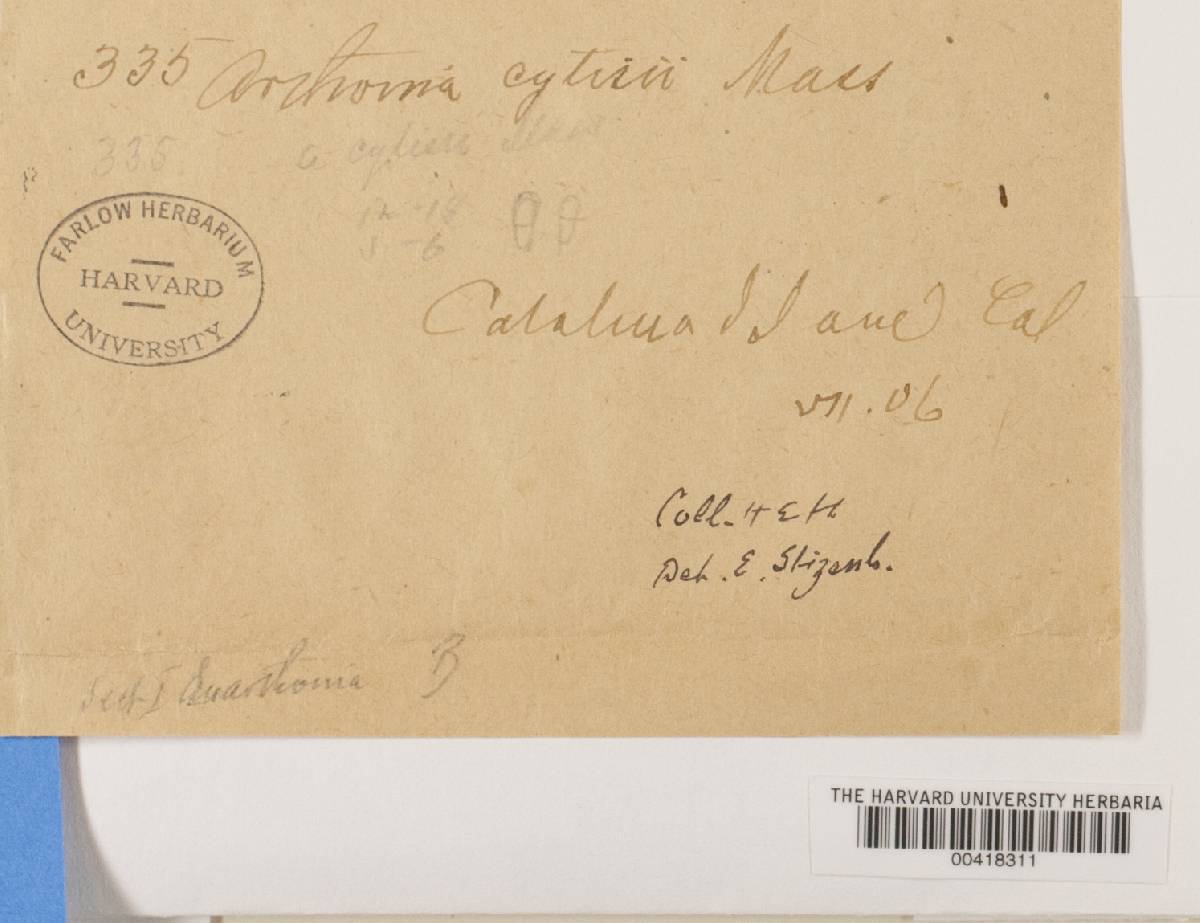 335 Arthonia cytisii Mass
335. a cytisii Mass
12-18
5-6
FARLOW HERBARIUM
HARVARD
UNIVERSITY
Catalina Island Cal
VII.06
Coll. HEH
Det. E. Stizenb.
Sect I Euarthonia B
THE HARVARD UNIVERSITY HERBARIA
00418311